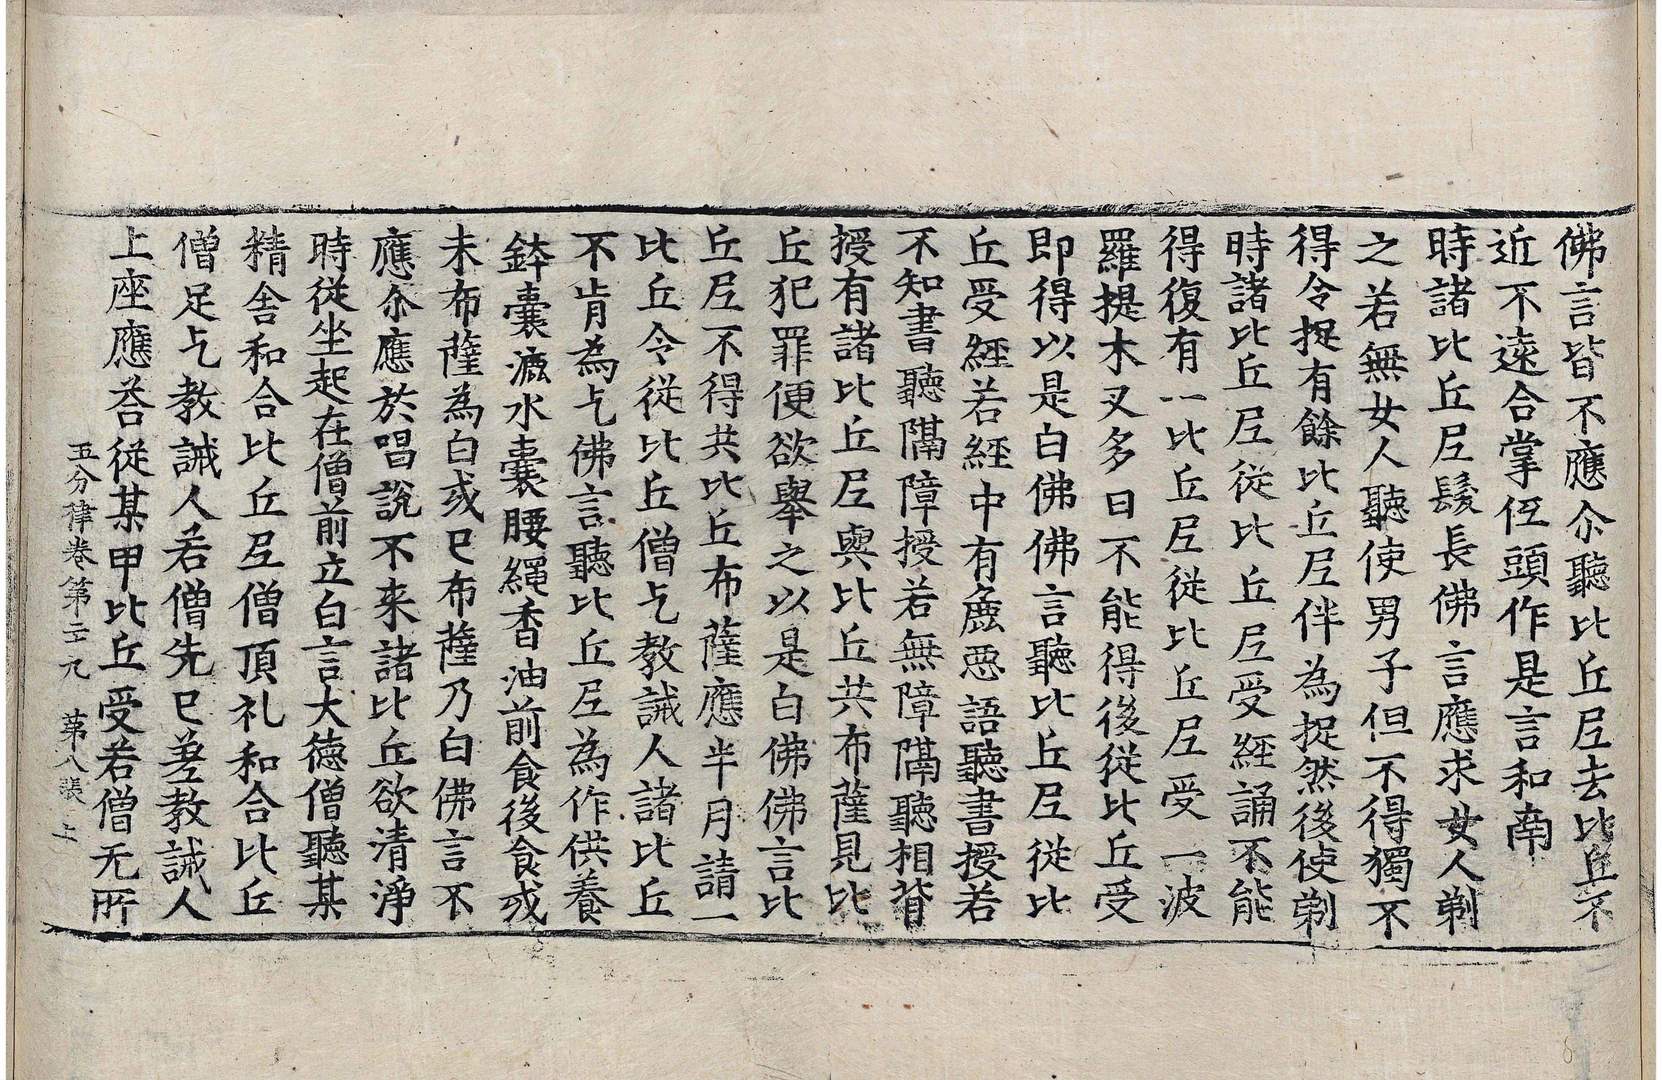 佛言皆不應尒聽比丘尼去比丘不
近不遠合掌伍頭作是言和南
時諸比丘尼髮長佛言應求女人剃
之若無女人聽使男子但不得獨不
得令捉有餘比丘尼伴為捉然後使剃
時諸比丘尼從比丘尼受經誦不能
得復有一比丘尼從比丘尼受一波
羅提木叉多日不能得後從比丘受
即得以是白佛佛言聽比丘尼從比
丘受經若經中有麁惡語聽書授若
不知書聽隔障授若無障隔聽相背
授有諸比丘尼與比丘共布薩見比
丘犯罪便欲舉之以是白佛佛言比
丘尼不得共比丘布薩應半月請一
比丘令從比丘僧乞教誡人諸比丘
不肯為乞佛言聽比丘尼為作供養
鉢囊漉水囊腰繩香油前食後食或
未布薩為白或已布薩乃白佛言不
應尒應於唱說不来諸比丘欲清淨
時從坐起在僧前立白言大德僧聽某
精舍和合比丘尼僧頂礼和合比丘
僧足乞教誡人若僧先已差教誡人
上座應荅從某甲比丘受若僧无所
五分律卷第二十九 第八張 上